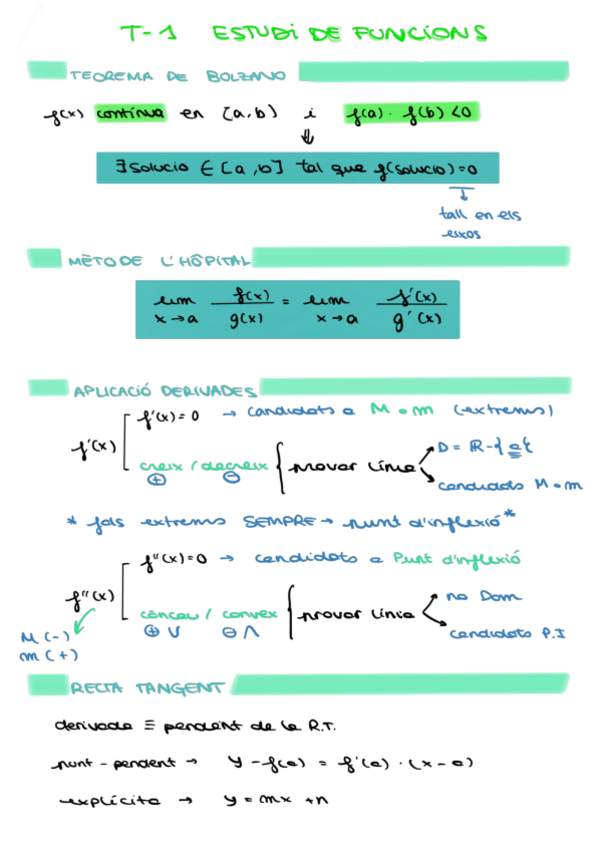 T-1 ESTUDI DE FUNCIONS
TEOREMA DE BOLZANO
f(x) contínua en [a,b) i f(a) · f(b) < 0
⇓
∃ solucio ∈ [a,b] tal que f(solucio) = 0
↓
tall en els
eixos
MÈTODE L'HÔPITAL
lim f(x) = lim f'(x)
x→a g(x) x→a g'(x)
APLICACIÓ DERIVADES
f'(x)=0 → candidats a M o m (extrems)
f'(x)
D = R-{a}
creix / decreix { provar línia
⊕ ⊖
candidats M o m
* fals extrems SEMPRE → punt d'inflexió *
f''(x)=0 → candidats a Punt d'inflexió
f''(x)
no Dom
còncau / convex { provar línia
⊕ ∪ ⊖ ∩
candidats P.I
M (-)
m (+)
RECTA TANGENT
derivada ≡ pendent de la R.T.
punt - pendent → y - f(a) = f'(a) · (x - a)
explícita → y = mx + n